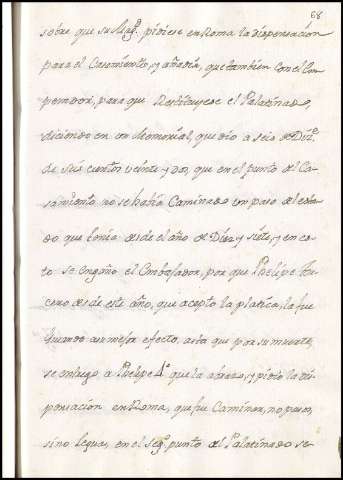 68
sobre que su Magᵈ. pidiese en Roma la dispensación
para el Casamiento, y añadia, que tambien con el Em-
perador, para que Restituyese el Palatinado,
diciendo en un Memorial, que dio a seis de Diz.ᵉ
de seis cientos veinte y dos, que en el punto del Ca-
samiento no se había Caminado un paso del esta-
do que tenia desde el año de Diez y siete, y en es-
to se engaño el Embajador, por que Phelipe Ter-
cero desde este año, que acepto la platica, la fue
guiando a su mejor efecto, asta que por su muerte,
se entrego a Phelipe 4.º que la abrazo, y pidio la dis-
pensación en Roma, que fue Caminar, no pasos,
sino leguas, en el seg.º punto del Palatinado se-